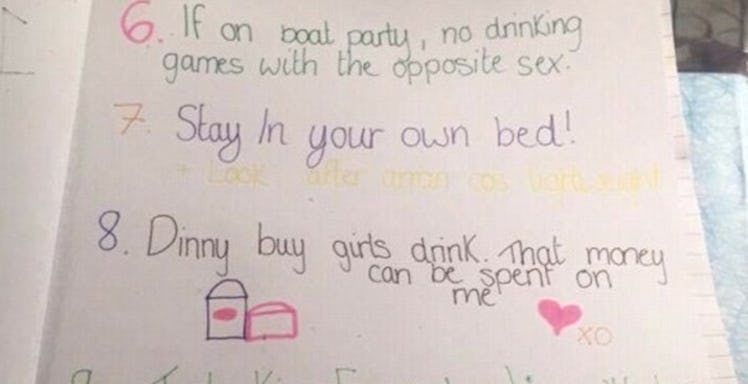 6. If on boat party, no drinking
games with the opposite sex.
7. Stay In your own bed!
+ Look after arran cos
8. Dinny buy girls drink. That money
can be spent on
me
XO